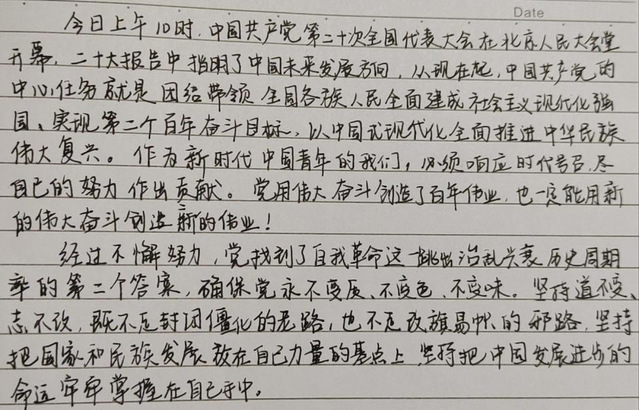 Date
今日上午10时,中国共产党第二十次全国代表大会在北京人民大会堂
开幕,二十大报告中指明了中国未来发展方向,从现在起,中国共产党的
中心任务就是团结带领全国各族人民全面建成社会主义现代化强
国、实现第二个百年奋斗目标,以中国式现代化全面推进中华民族
伟大复兴。作为新时代中国青年的我们,必须响应时代号召,尽
自己的努力作出贡献。党用伟大奋斗创造了百年伟业,也一定能用新
的伟大奋斗创造新的伟业!
经过不懈努力,党找到了自我革命这一跳出治乱兴衰历史周期
率的第二个答案,确保党永不变质、不变色、不变味。坚持道不变、
志不改,既不走封闭僵化的老路,也不走改旗易帜的邪路,坚持
把国家和民族发展放在自己力量的基点上,坚持把中国发展进步的
命运牢牢掌握在自己手中。